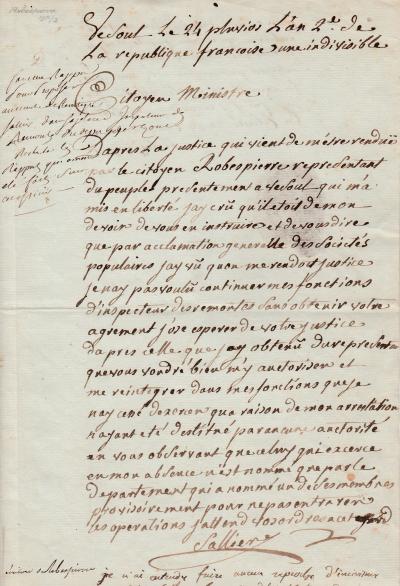 Vesoul Le 24 pluviose L'an 2e. de
La republique francoise, une indivisible
Citoyen Ministre
D'apres La justice qui vient de m'être rendüe
par le citoyen Robespierre representant
du peuple presentement a Vesoul qui m'a
mis en liberté jay crû qu'il étoit de mon
devoir de vous en instruire et de vous dire
que par acclamation generalle des Societés
populaires jay vû quon me rendoit justice
je nay pas voulu continuer mes fonctions
d'inspecteur des remontes sans obtenir votre
agrement jose esperer de votre justice
dapres celle que jay obtenu du representant
que vous voudré bien m'y autoriser et
me reintegrer dans mes fonctions que je
nay cessé dexercer qua raison de mon arrestation
n'ayant eté destitué par aucune auctorité
en vous observant que celuy qui exerce
en mon absence n'est nommé que par le
departement qui a nommé un de ses membres
provisoirement pour ne pas entraver
les operations jattend vos ordres a cet egard
Sallier
je n'ai entendu faire aucun